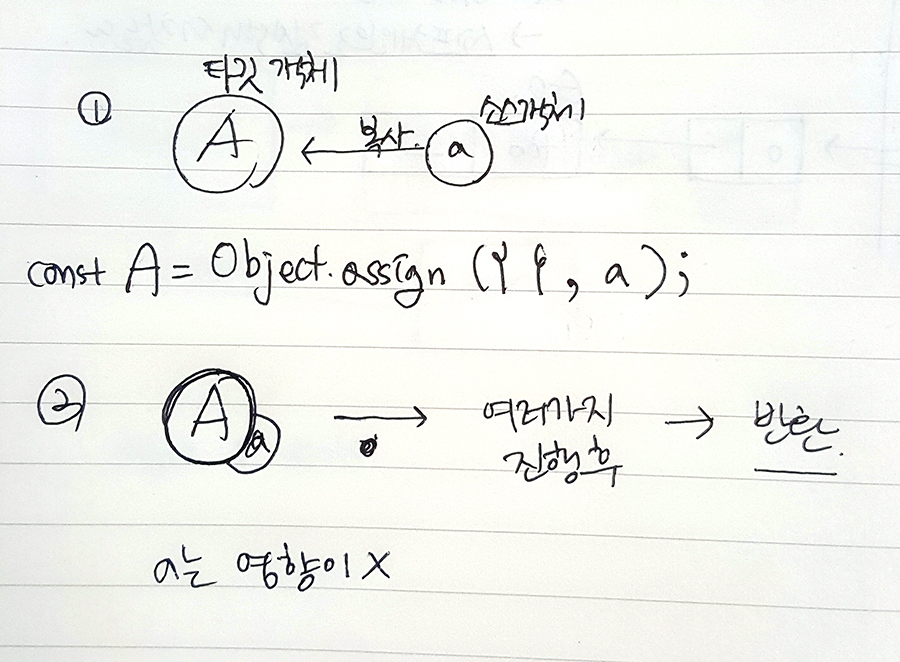 타깃 객체
① A ← 복사. a 소스객체
const A = Object.assign ({ }, a);
② A a → 여러가지 → 반환.
진행후
a는 영향이 X